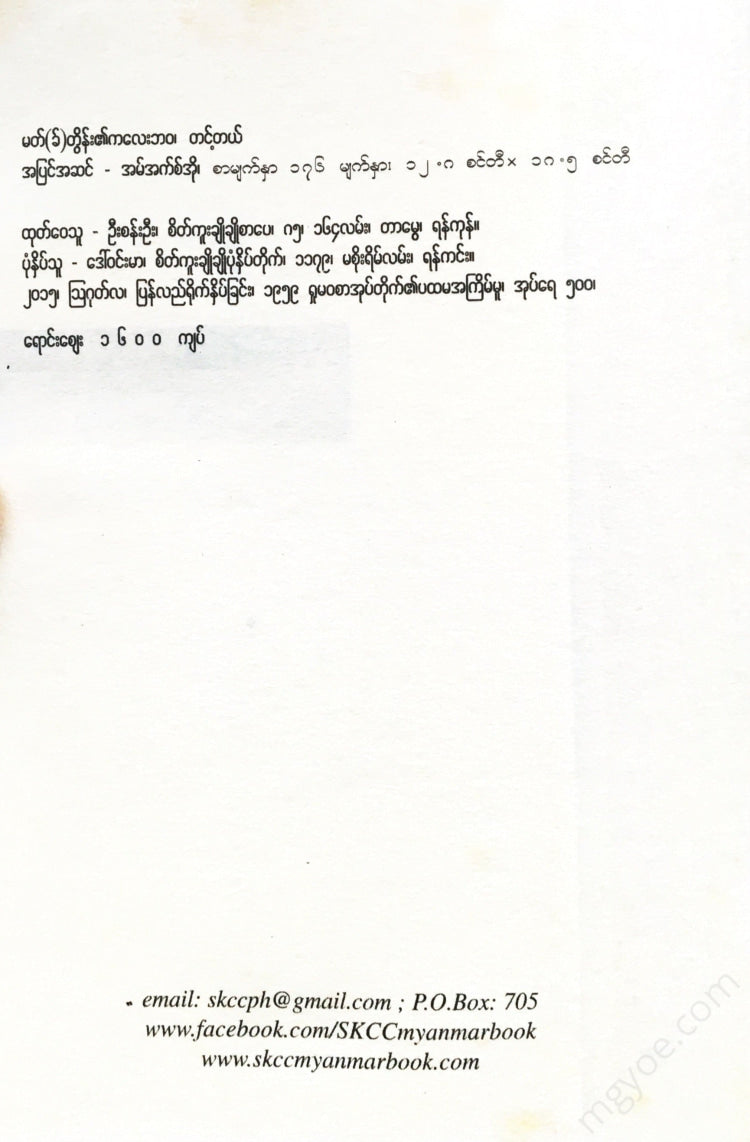 မတ်(ခ်)တွိန်း၏ကလေးဘဝ၊ တင့်တယ်
အပြင်အဆင် - အမ်အက်စ်အို၊ စာမျက်နှာ ၁၇၆ မျက်နှာ၊ ၁၂.၈ စင်တီ× ၁၈.၅ စင်တီ
ထုတ်ဝေသူ - ဦးစန်းဦး၊ စိတ်ကူးချိုချိုစာပေ၊ ၈၅၊ ၁၆၄လမ်း၊ တာမွေ၊ ရန်ကုန်။
ပုံနှိပ်သူ - ဒေါ်ဝင်းမာ၊ စိတ်ကူးချိုချိုပုံနှိပ်တိုက်၊ ၁၁၇၉၊ မစိုးရိမ်လမ်း၊ ရန်ကင်း။
၂၀၁၅၊ ဩဂုတ်လ၊ ပြန်လည်ရိုက်နှိပ်ခြင်း၊ ၁၉၅၉ ရှုမဝစာအုပ်တိုက်၏ပထမအကြိမ်မူ၊ အုပ်ရေ ၅၀၀၊
ရောင်းဈေး ၁၆၀၀ ကျပ်
email: skccph@gmail.com ; P.O.Box: 705
www.facebook.com/SKCCmyanmarbook
www.skccmyanmarbook.com
mgyoe.com